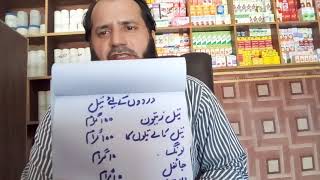 دردوں کے لیے تیل
تیل زیتون ۱۰۰ گرام
تیل کالے تلوں کا ۱۰۰ گرام
لونگ ۱۰ گرام
جائفل